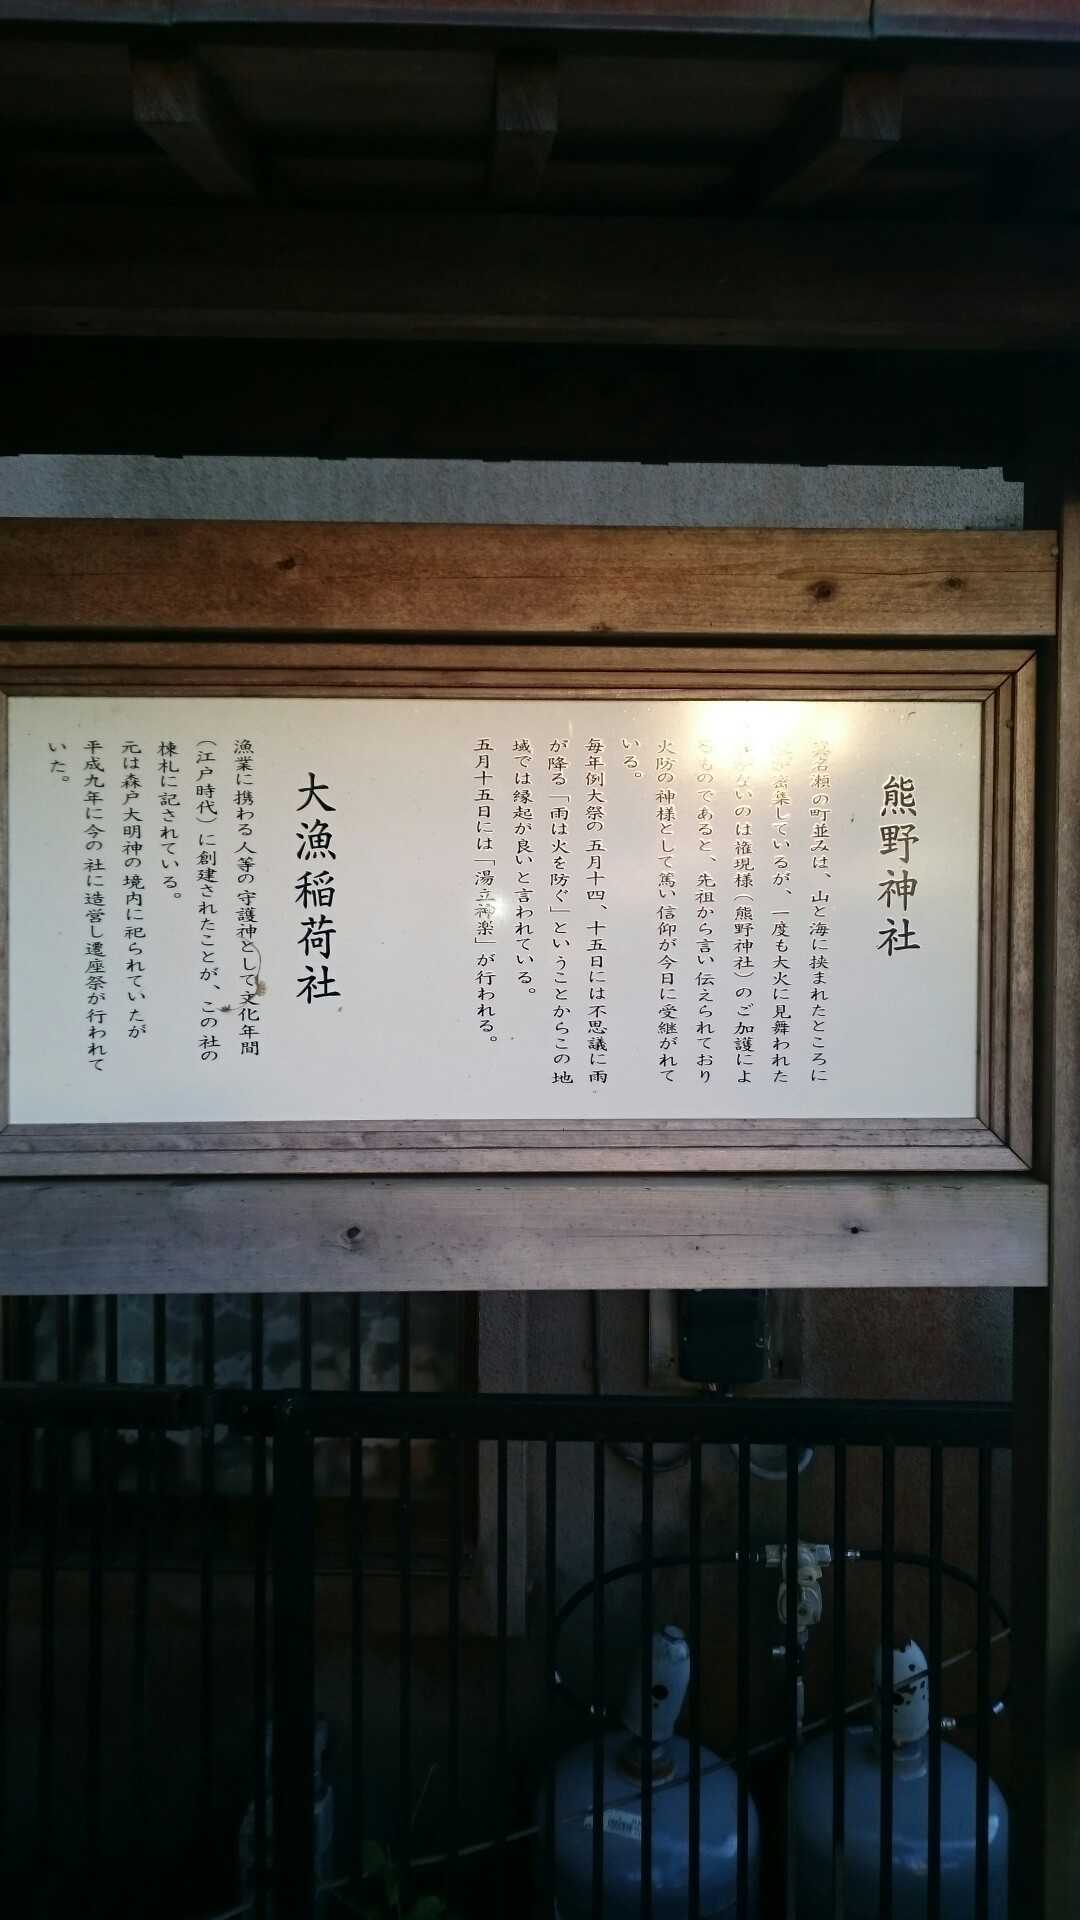 熊野神社
名瀬の町並みは、山と海に挟まれたところに
密集しているが、一度も大火に見舞われた
ないのは権現様(熊野神社)のご加護によ
るものであると、先祖から言い伝えられており
火防の神様として篤い信仰が今日に受継がれて
いる。
毎年例大祭の五月十四、十五日には不思議に雨
が降る「雨は火を防ぐ」ということからこの地
域では縁起が良いと言われている。
五月十五日には「湯立神楽」が行われる。
大漁稲荷社
漁業に携わる人等の守護神として文化年間
(江戸時代)に創建されたことが、この社の
棟札に記されている。
元は森戸大明神の境内に祀られていたが
平成九年に今の社に造営し遷座祭が行われて
いた。